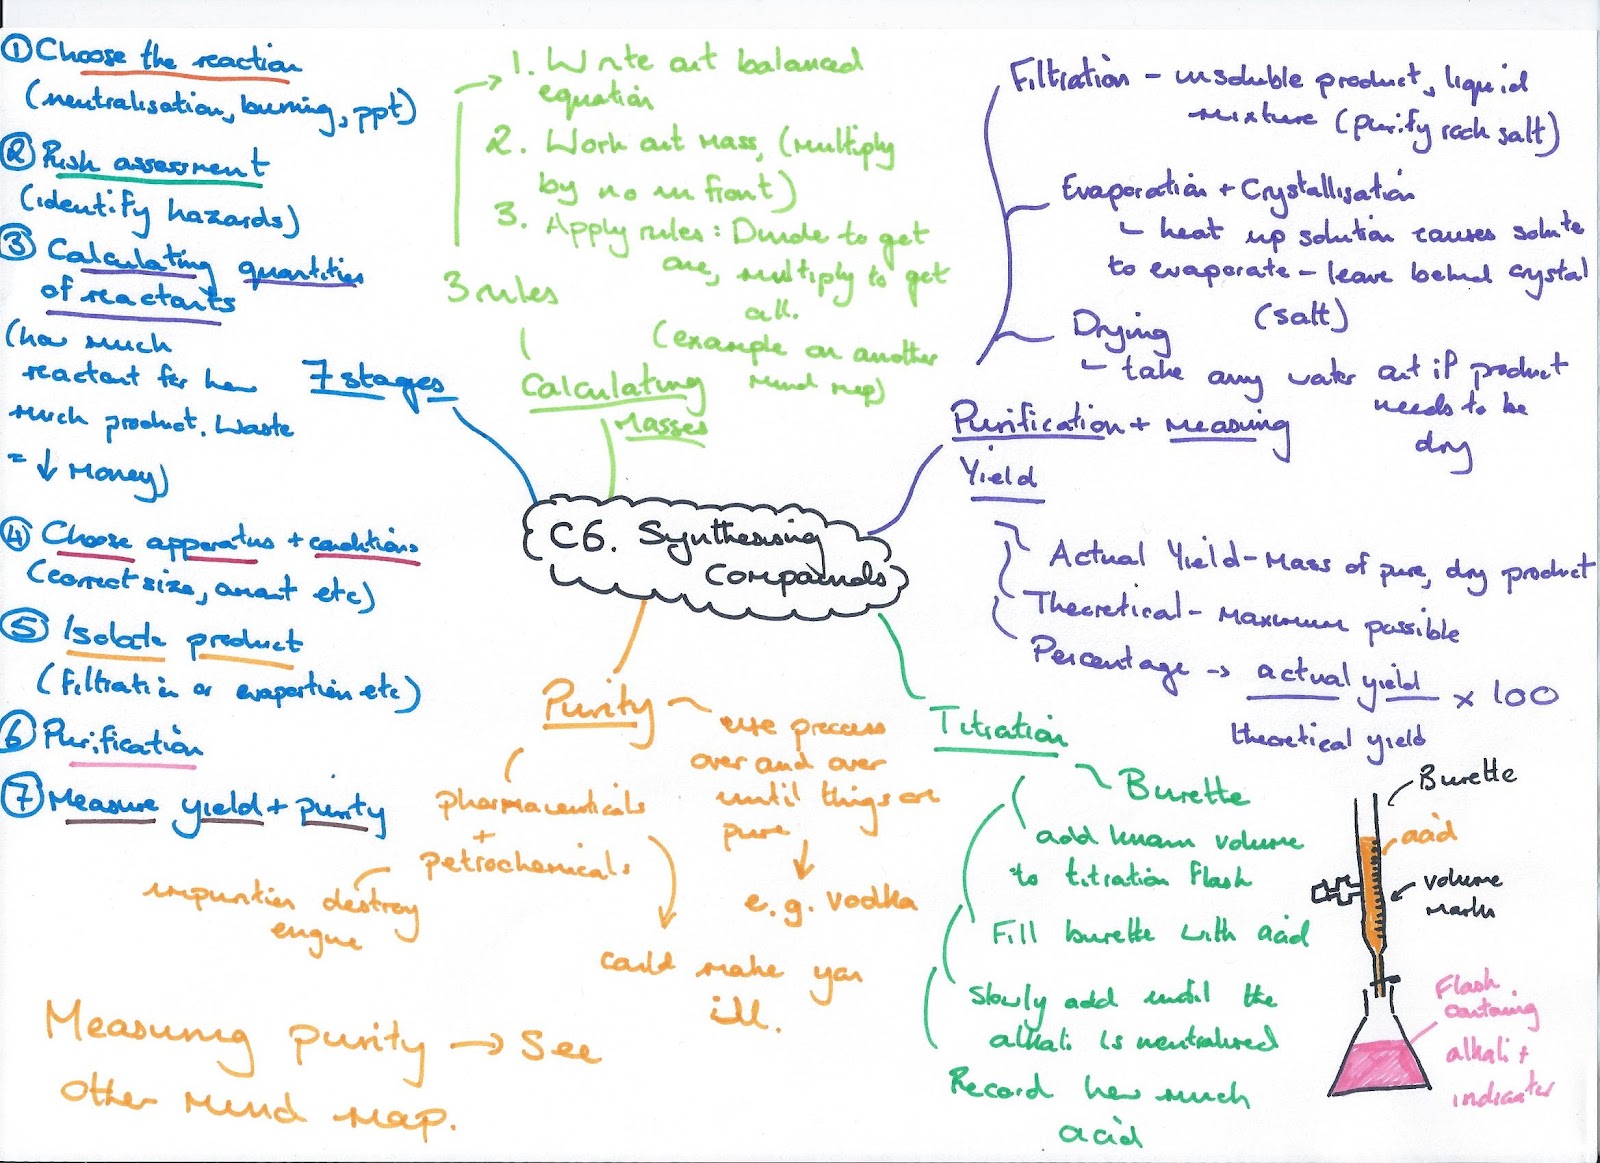 ① Choose the reaction
(neutralisation, burning, ppt)
② Risk assessment
(identify hazards)
③ Calculating quantities
of reactants
(how much
reactant for how
much product. Waste
= ↓ Money)
④ Choose apparatus + conditions
(correct size, amount etc)
⑤ Isolate product
(filtration or evaportion etc)
⑥ Purification
⑦ Measure yield + purity
7 stages
1. Write out balanced
equation
2. Work out mass, (multiply
by no in front)
3. Apply rules: Divide to get
one, multiply to get
all.
(example on another
mind map)
3 rules
Calculating
Masses
Filtration - insoluble product, liquid
mixture (purify rock salt)
Evaporation + Crystallisation
↳ heat up solution causes solute
to evaporate - leave behind crystal
(salt)
Drying
↳ take any water out if product
needs to be
dry
Purification + measuring
Yield
Actual Yield - Mass of pure, dry product
Theoretical - maximum possible
Percentage → actual yield x 100
theoretical yield
C6. Synthesising
Compounds
Purity
use process
over and over
until things are
pure
e.g. vodka
pharmaceuticals
+
petrochemicals
impurities destroy
engine
could make you
ill.
Measuring purity → See
other mind map.
Titration
Burette
add known volume
to titration flask
Fill burette with acid
Slowly add until the
alkali is neutralised
Record how much
acid
Burette
acid
volume
marks
Flask
containing
alkali +
indicator